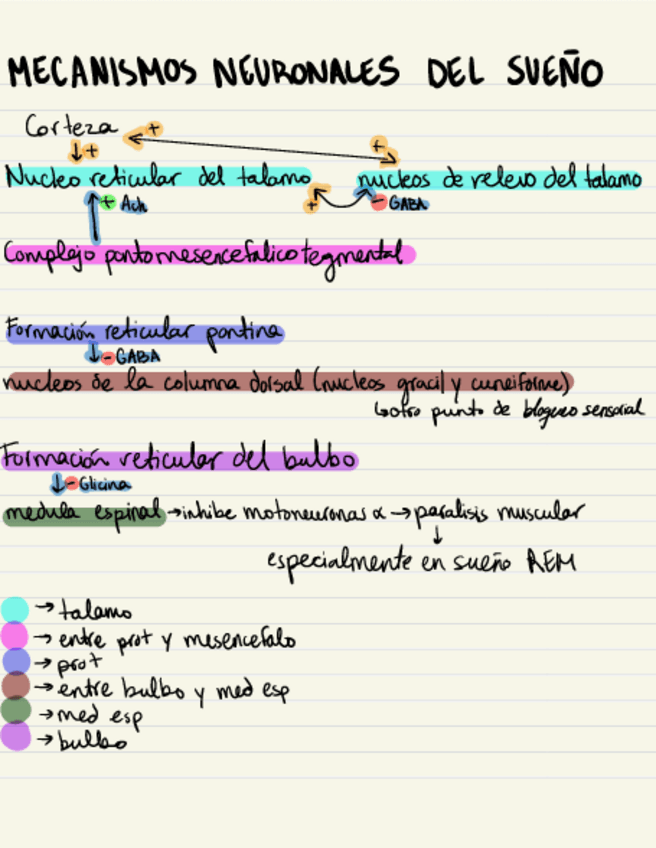 MECANISMOS NEURONALES DEL SUEÑO
Corteza + +
↓ +
Nucleo reticular del talamo nucleos de relevo del talamo
+ Ach + - GABA
Complejo pontomesencefalico tegmental
Formación reticular pontina
↓ - GABA
nucleos de la columna dorsal (nucleos gracil y cuneiforme)
↳ otro punto de bloqueo sensorial
Formación reticular del bulbo
↓ - Glicina
medula espinal → inhibe motoneuronas α → paralisis muscular
↓
especialmente en sueño REM
→ talamo
→ entre prot y mesencefalo
→ prot
→ entre bulbo y med esp
→ med esp
→ bulbo